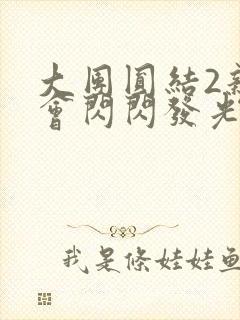 大團圓結2
會閃閃發光
我是條娃娃魚